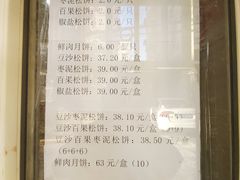 枣泥松饼：2.0 元/只
百果松饼：2.0 元/只
椒盐松饼：2.0 元/只
鲜肉月饼：6.00 /只
豆沙松饼：37.20 元/盒
枣泥松饼：39.00 元/盒
百果松饼：39.00 元/盒
椒盐松饼：39.00 元/盒
豆沙枣泥松饼：38.10 元/盒
豆沙百果松饼：38.10 元/盒
豆沙百果枣泥松饼：38.50 元/盒
(6+6+6)
鲜肉月饼：63 元/盒（10）